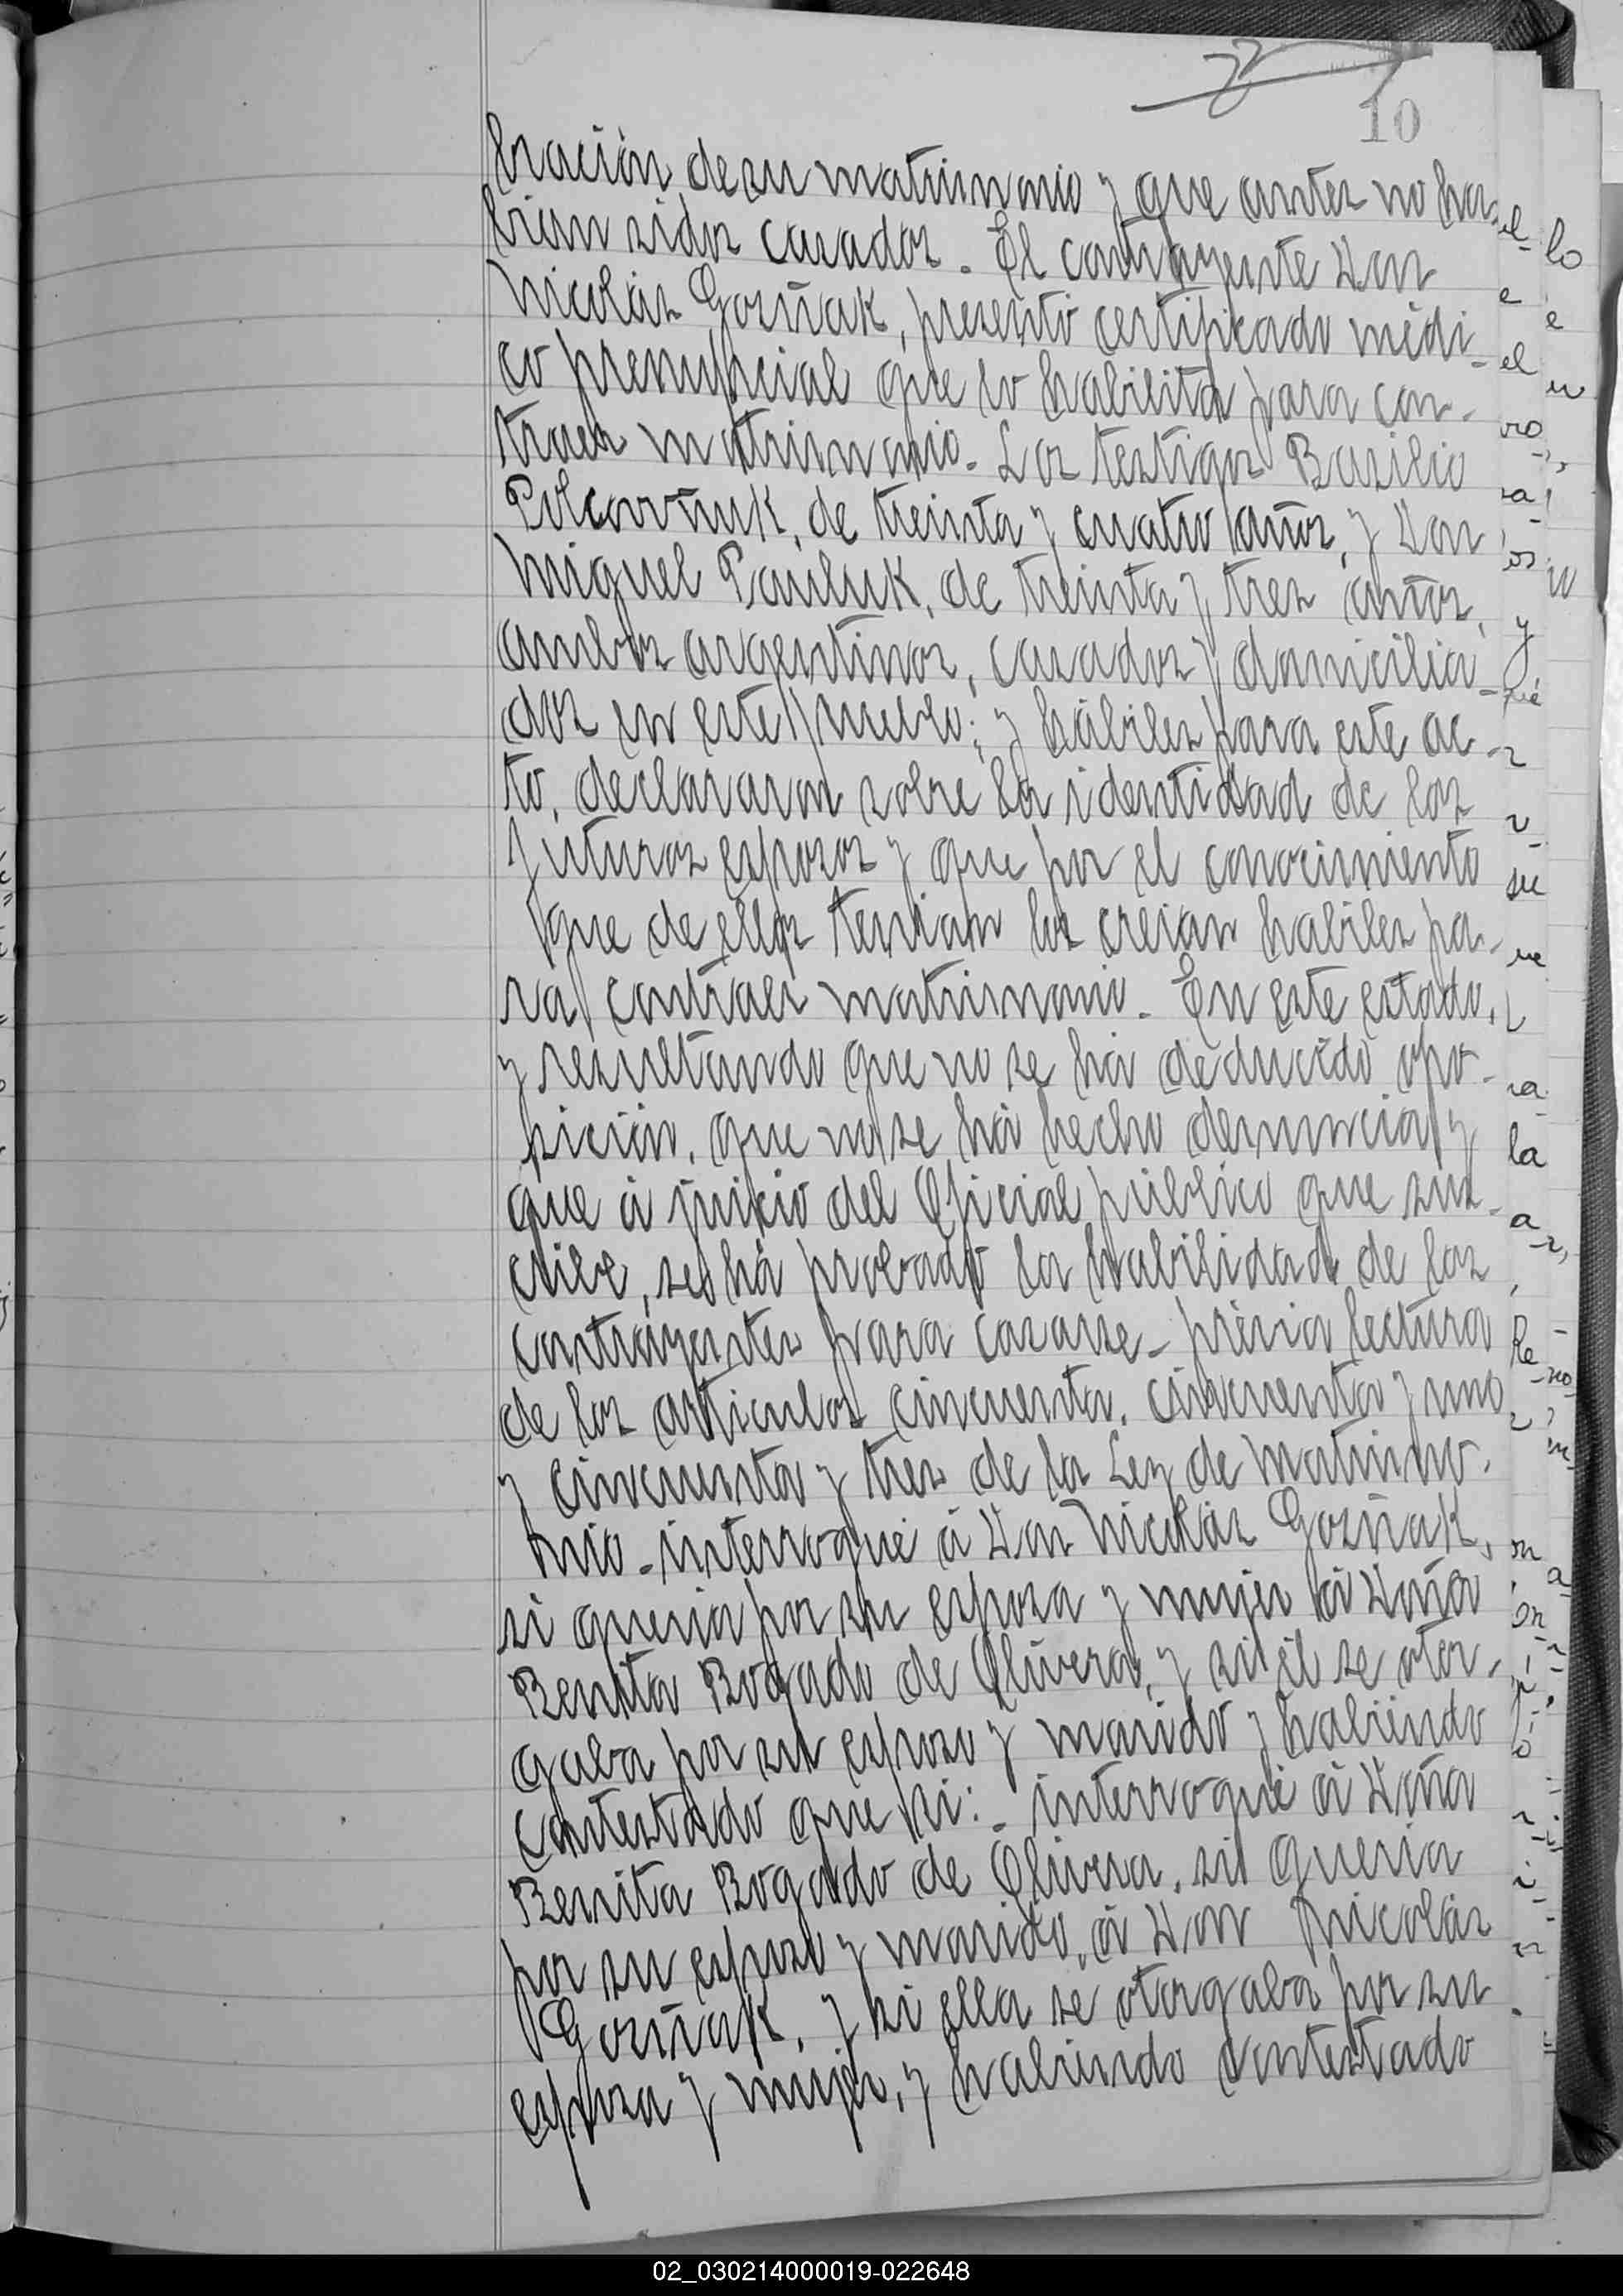 10
bración de su matrimonio y que antes no ha-
bian sidos casados. El contrayente Don
Nicolás Gosñak, presentó certificado médi-
co prenupcial que lo habilita para con-
traer matrimonio. Los testigos Basilio
de treinta y cuatro años, y Don
Miguel Pauluk, de treinta y tres años,
ambos argentinos, casados y domicilia-
dos en este pueblo; y hábiles para este ac-
to, declararon sobre la identidad de los
futuros esposos y que por el conocimiento
que de ellos tenian los creian habiles pa-
ra contraer matrimonio. En este estado,
y resultando que no se há deducido opo-
sición, que no se há hecho denuncia y
que á juicio del Oficial público que sus-
cribe, se há probado la habilidad de los
contrayentes para casarse - prévia lectura
de los articulos cincuenta, cincuenta y uno
y cincuenta y tres de la Ley de Matrimo-
nio - interrogué á Don Nicolás Gosñak,
si queria por su esposa y mujer á Doña
Benita Bogado de Olivera, y si él se otor-
gaba por su esposo y marido y habiendo
contestado que si: - interrogué á Doña
Benita Bogado de Olivera, si queria
por su esposo y marido, á Don Nicolás
Gosñak, y si ella se otorgaba por su
esposa y mujer, y habiendo contestado
02_030214000019-022648